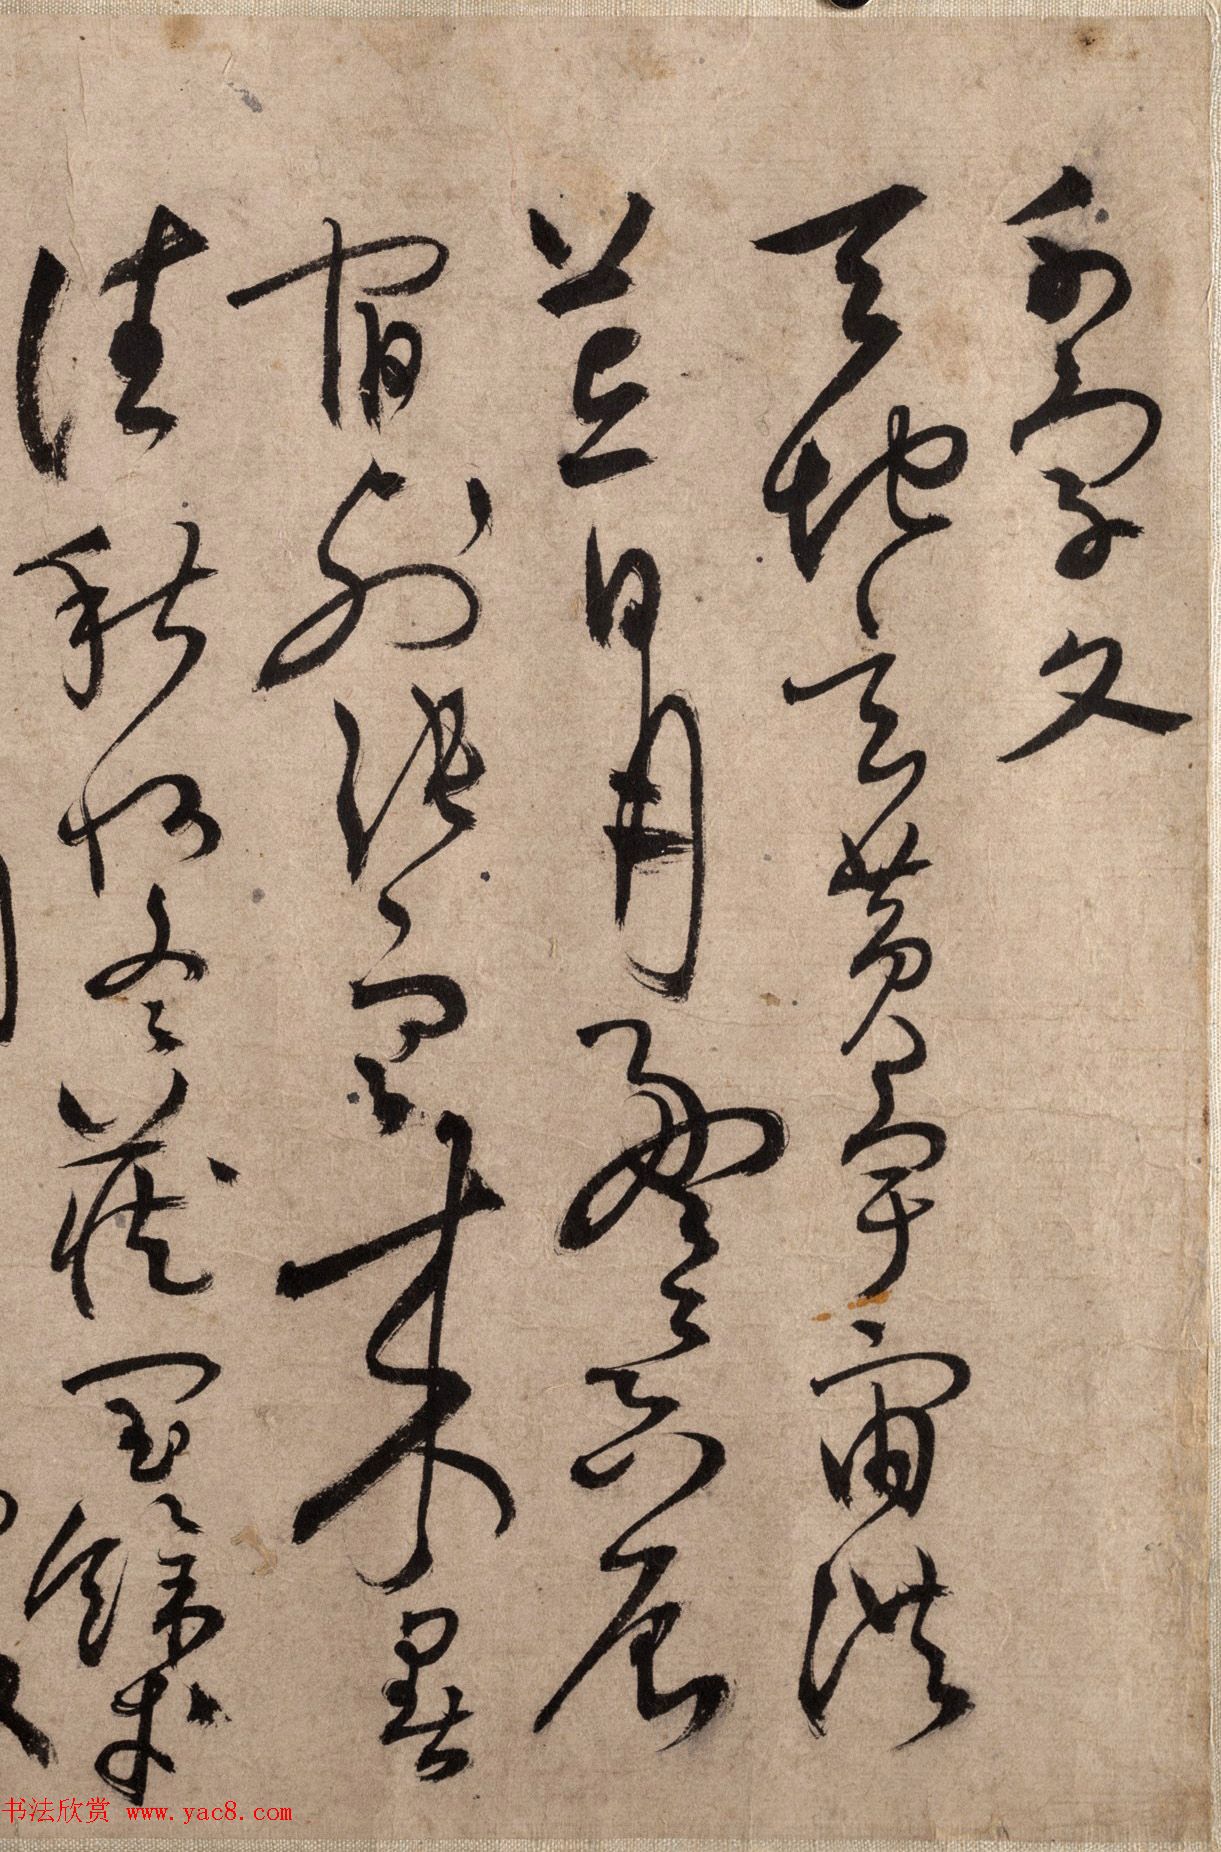 千字文
天地玄黄宇宙洪
荒日月盈昃辰
宿列張寒来暑
往秋收冬藏閏餘成
书法欣赏 www.yac8.com